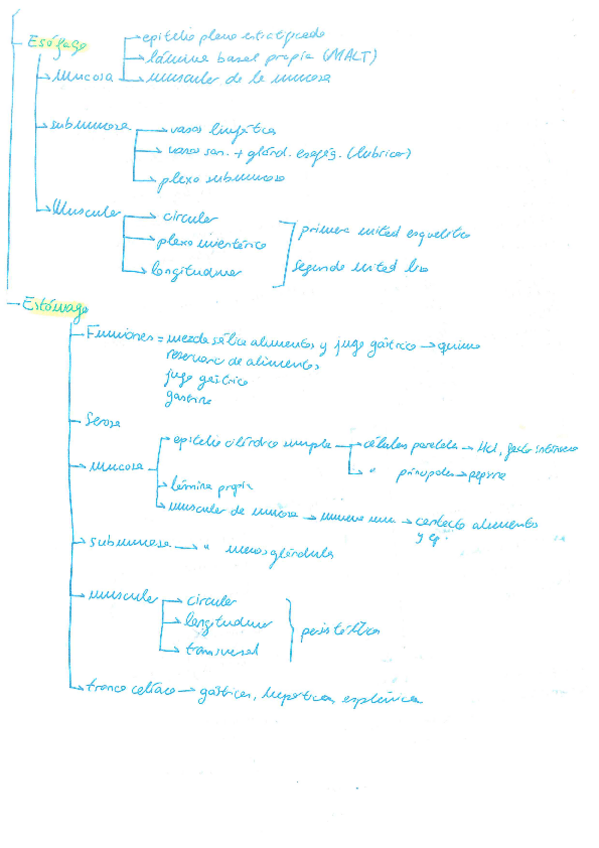 Esófago
epitelio plano estratificado
lámina basal propia (MALT)
Mucosa
muscular de la mucosa
submucosa
vasos linfática
vasos san. + glánd. esofág. (lubricar)
plexo submucoso
Muscular
circular
plexo mientérico
longitudinal
primera mitad esquelética
segunda mitad lisa
Estómago
Funciones = mezcla saliva alimentos y jugo gástrico → quimo
reservorio de alimentos
jugo gástrico
gastrina
Serosa
mucosa
epitelio cilíndrico simple → células parietales → HCl, factor intrínseco
" principales → pepsina
lámina propia
muscular de mucosa → → contacto alimentos
y ep.
submucosa → " menos glándula
muscular
circular
longitudinal
transversal
peristáltica
tronco celíaco → gástricas, hepáticas, esplénica